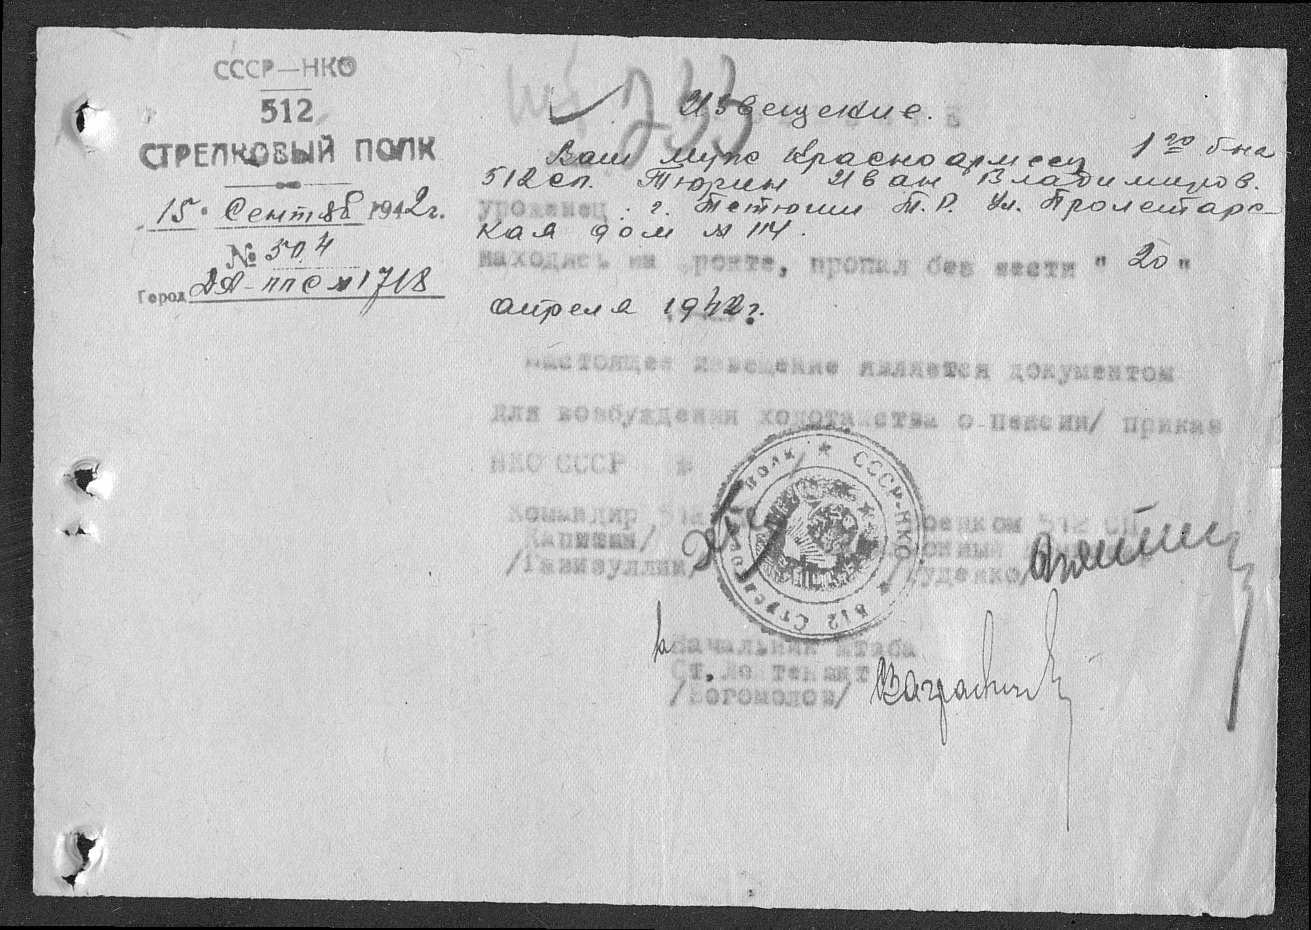 СССР—НКО
512
СТРЕЛКОВЫЙ ПОЛК
15. Сентяб 1942г.
№ 504
Город ДА-ППС № 1718
233
Извещение.
Ваш муж Красноармеец 1го б-на
512 сп. Тюрин Иван Владимиров.
уроженец: г. Тетюши Т.Р. Ул. Пролетарс-
кая дом № 114.
находясь на фронте, пропал без вести " 20 "
апреля 1942г.
Настоящее извещение является документом
для возбуждения ходатайства о пенсии/ приказ
НКО СССР №
Командир 512 СП
Капитан/
/Гайнзуллин/
Военком 512 СП
/Руденко/
Начальник штаба
Ст. лейтенант
/Богомолов/
512 Стрелковый полк * СССР-НКО *